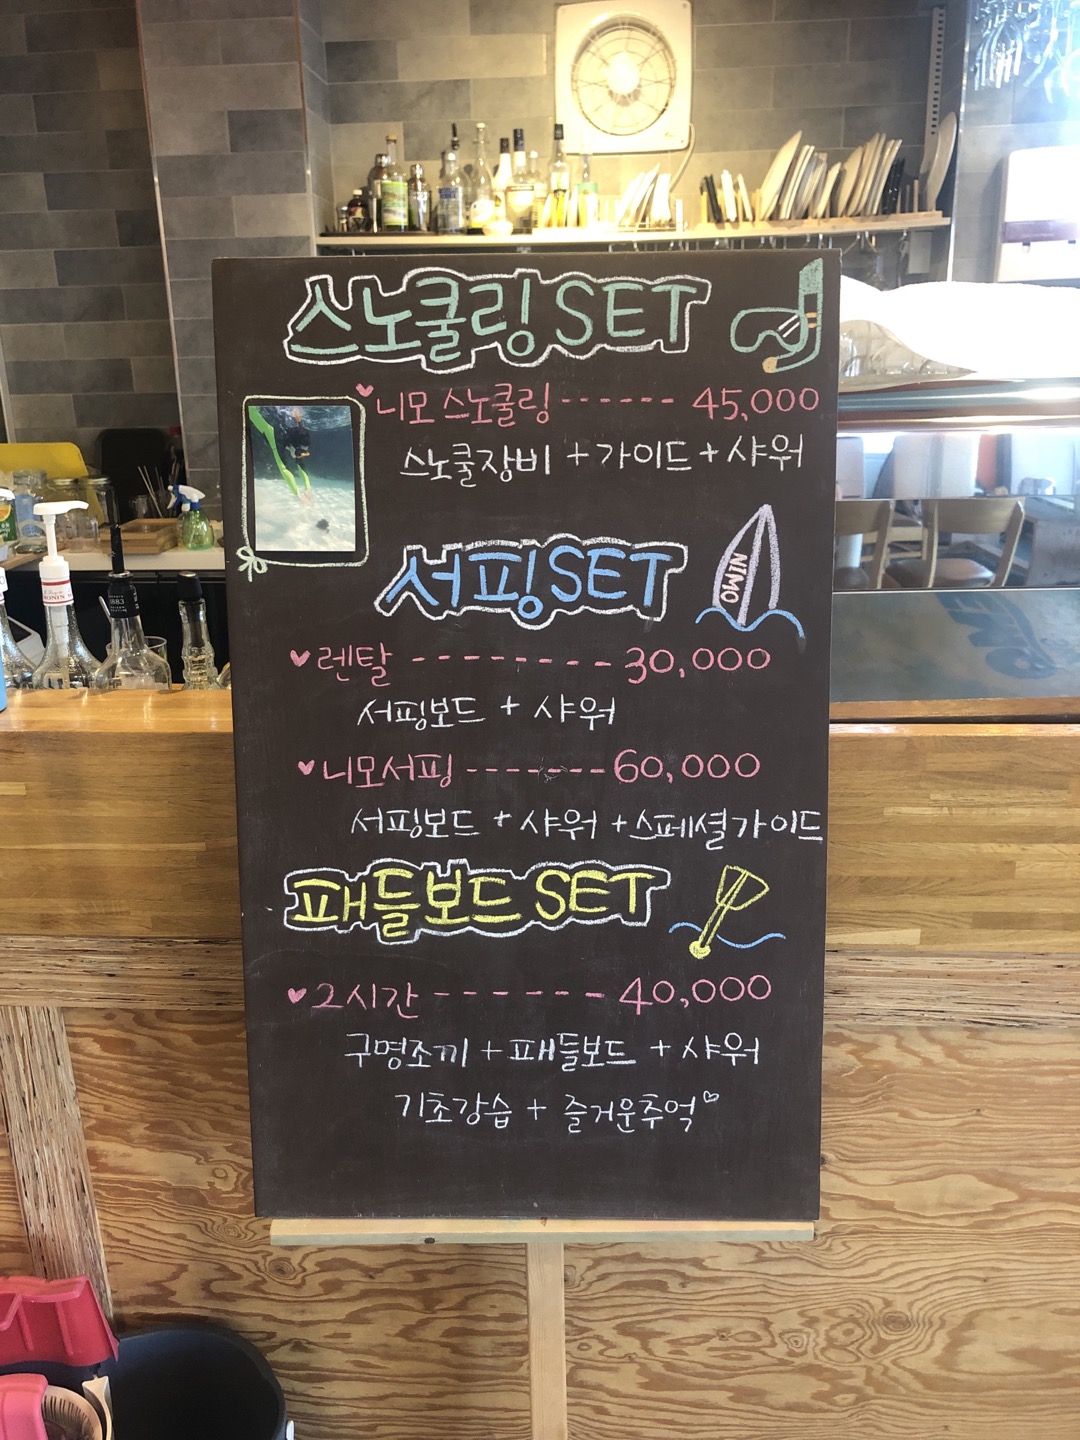 스노쿨링 SET
♥니모 스노쿨링 ------ 45,000
스노쿨장비 + 가이드 + 샤워
서핑 SET
NIMO
♥렌탈 -------- 30,000
서핑보드 + 샤워
♥니모서핑 ------- 60,000
서핑보드 + 샤워 + 스페셜가이드
패들보드 SET
♥2시간 ------ 40,000
구명조끼 + 패들보드 + 샤워
기초강습 + 즐거운추억♡